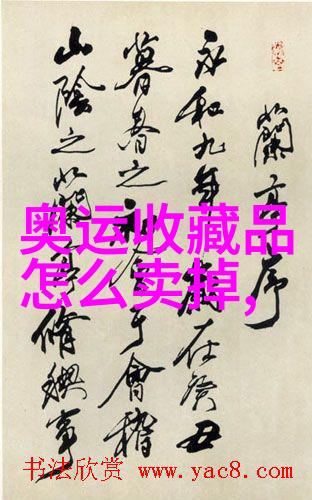 蘭亭序
永和九年歲在癸丑
暮春之初會于會稽
山陰之蘭亭脩禊事
奥运收藏品
怎么卖掉,
书法欣赏 www.yac8.com